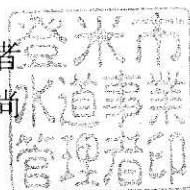 登米市
水道事業
管理者印
者
尚